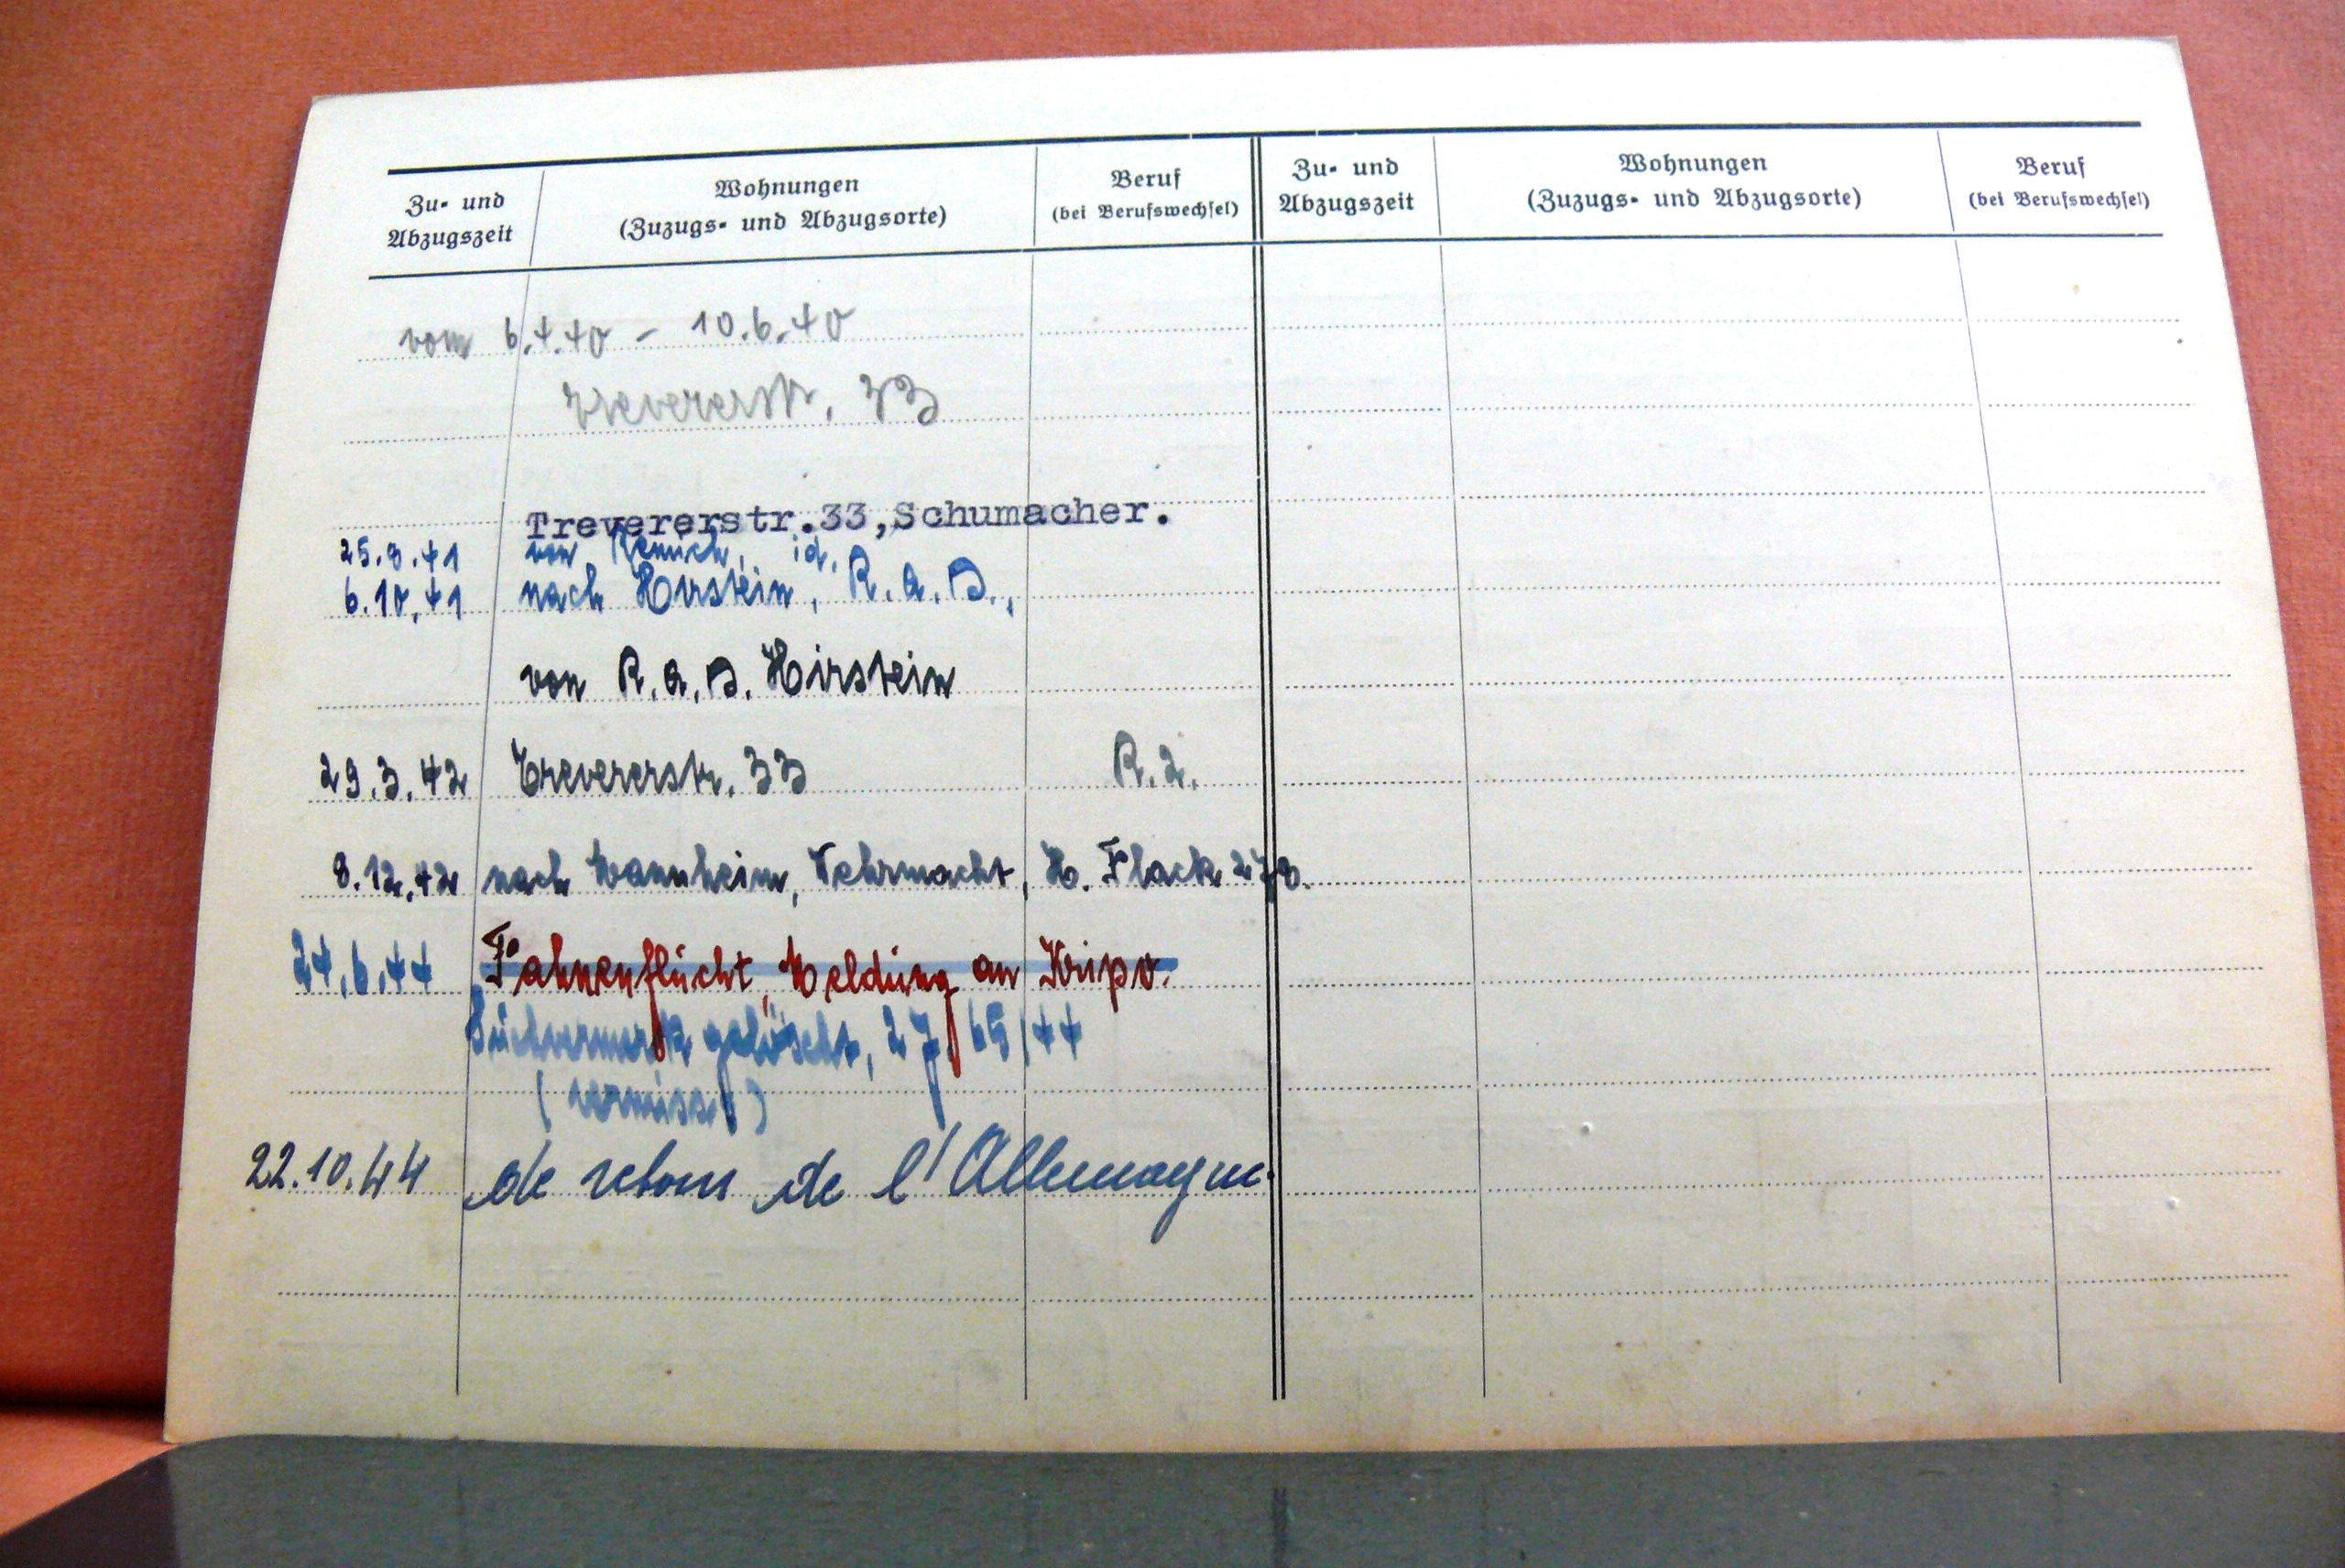 Zu- und
Abzugszeit
Wohnungen
(Zuzugs- und Abzugsorte)
Beruf
(bei Berufswechsel)
Zu- und
Abzugszeit
Wohnungen
(Zuzugs- und Abzugsorte)
Beruf
(bei Berufswechsel)
vom 6.4.40 - 10.6.40
Trevererstr. 33
Trevererstr.33,Schumacher.
25.8.41 von Remich, id.
6.10.41 nach Hirstein, R.A.D.,
von R.A.D. Hirstein
29.3.42 Trevererstr. 33 R.2.
8.12.42 nach Mannheim, Wehrmacht, H. Flack 278.
24.6.44 Fahnenflucht, Meldung an Kripo.
Suchvermerk gelöscht, 27/65/44
(vermisst)
22.10.44 de retour de l'Allemagne.